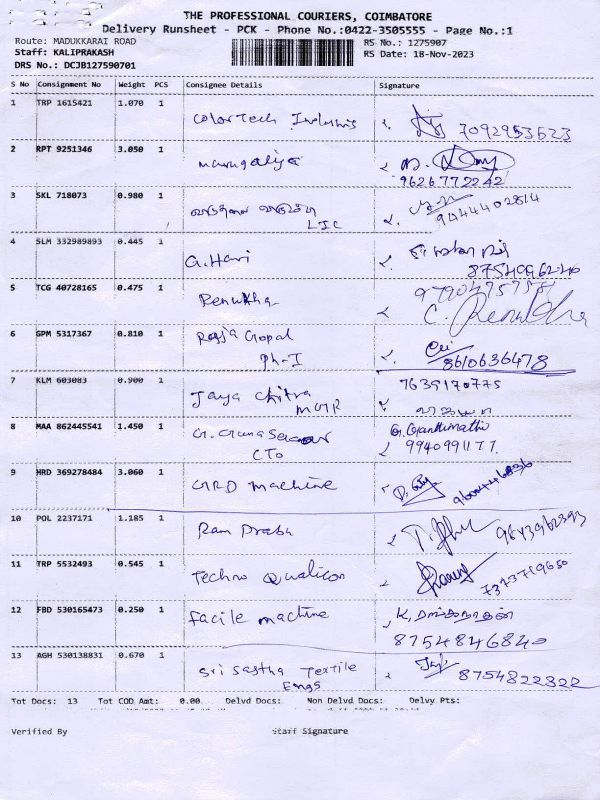 THE PROFESSIONAL COURIERS, COIMBATORE
Delivery Runsheet - PCK - Phone No.:0422-3505555 - Page No.:1
Route: MADUKKARAI ROAD
RS No.: 1275907
Staff: KALIPRAKASH
RS Date: 18-Nov-2023
DRS No.: DCJB127590701
S No Consignment No Weight PCS Consignee Details Signature
1 TRP 1615421 1.070 1
ColorTech 7092953623
2 RPT 9251346 3.050 1
9626772242
3 SKL 718073 0.980 1
LIC 9444402814
4 SLM 332989893 0.445 1
G.Hari
8754096240
5 TCG 40728165 0.475 1
Renukha C. Renukha
6 GPM 5317367 0.810 1
Raja Gopal
Ph-I 8610636478
7 KLM 603083 0.900 1 7639170775
Jaya Chitra
MGR
8 MAA 862445541 1.450 1 G. Ganthimathi
G. Gunasekar 994099177
CTO
9 HRD 369278484 3.060 1
GRD machine
10 POL 2237171 1.185 1
Ram Prabu 9843962393
11 TRP 5532493 0.545 1
Techno 7373719650
12 FBD 530165473 0.250 1
Facile machine
8754846840
13 AGH 530138831 0.670 1
Sri Sastha Textile 8754822322
Engs
Tot Docs: 13 Tot COD Amt: 0.00 Delvd Docs: Non Delvd Docs: Delvy Pts:
Verified By Staff Signature